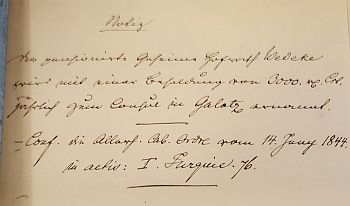 Notiz
Der pensionirte Geheime Hofrath Wedeke
wird mit einer Besoldung von 3000. rℓ Crt.
jährlich zum Consul in Galatz ernannt.
- Conf. die Allerh. Cab. Ordre vom 14. Juny 1844.
in actis: I. Turquie. 76.